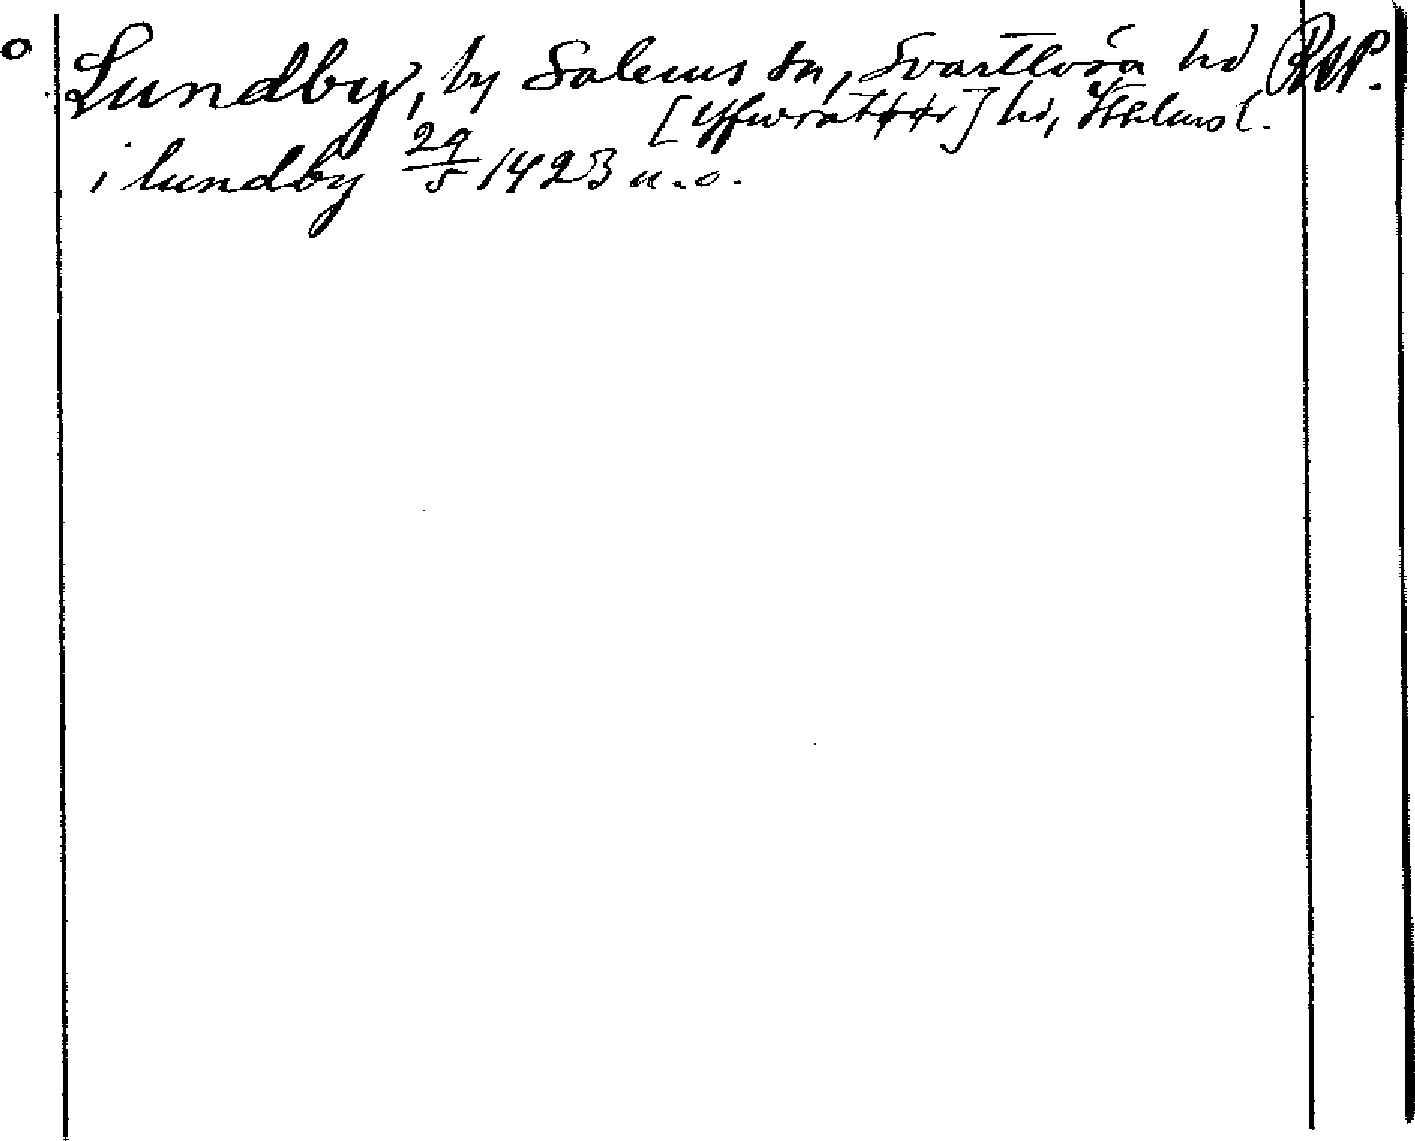 Lundby, by Salems sn, Svartlösa hd RAP.
[Yfwratörs] hd, Sthlms l.
i lundby 29/5 1423 u.o.